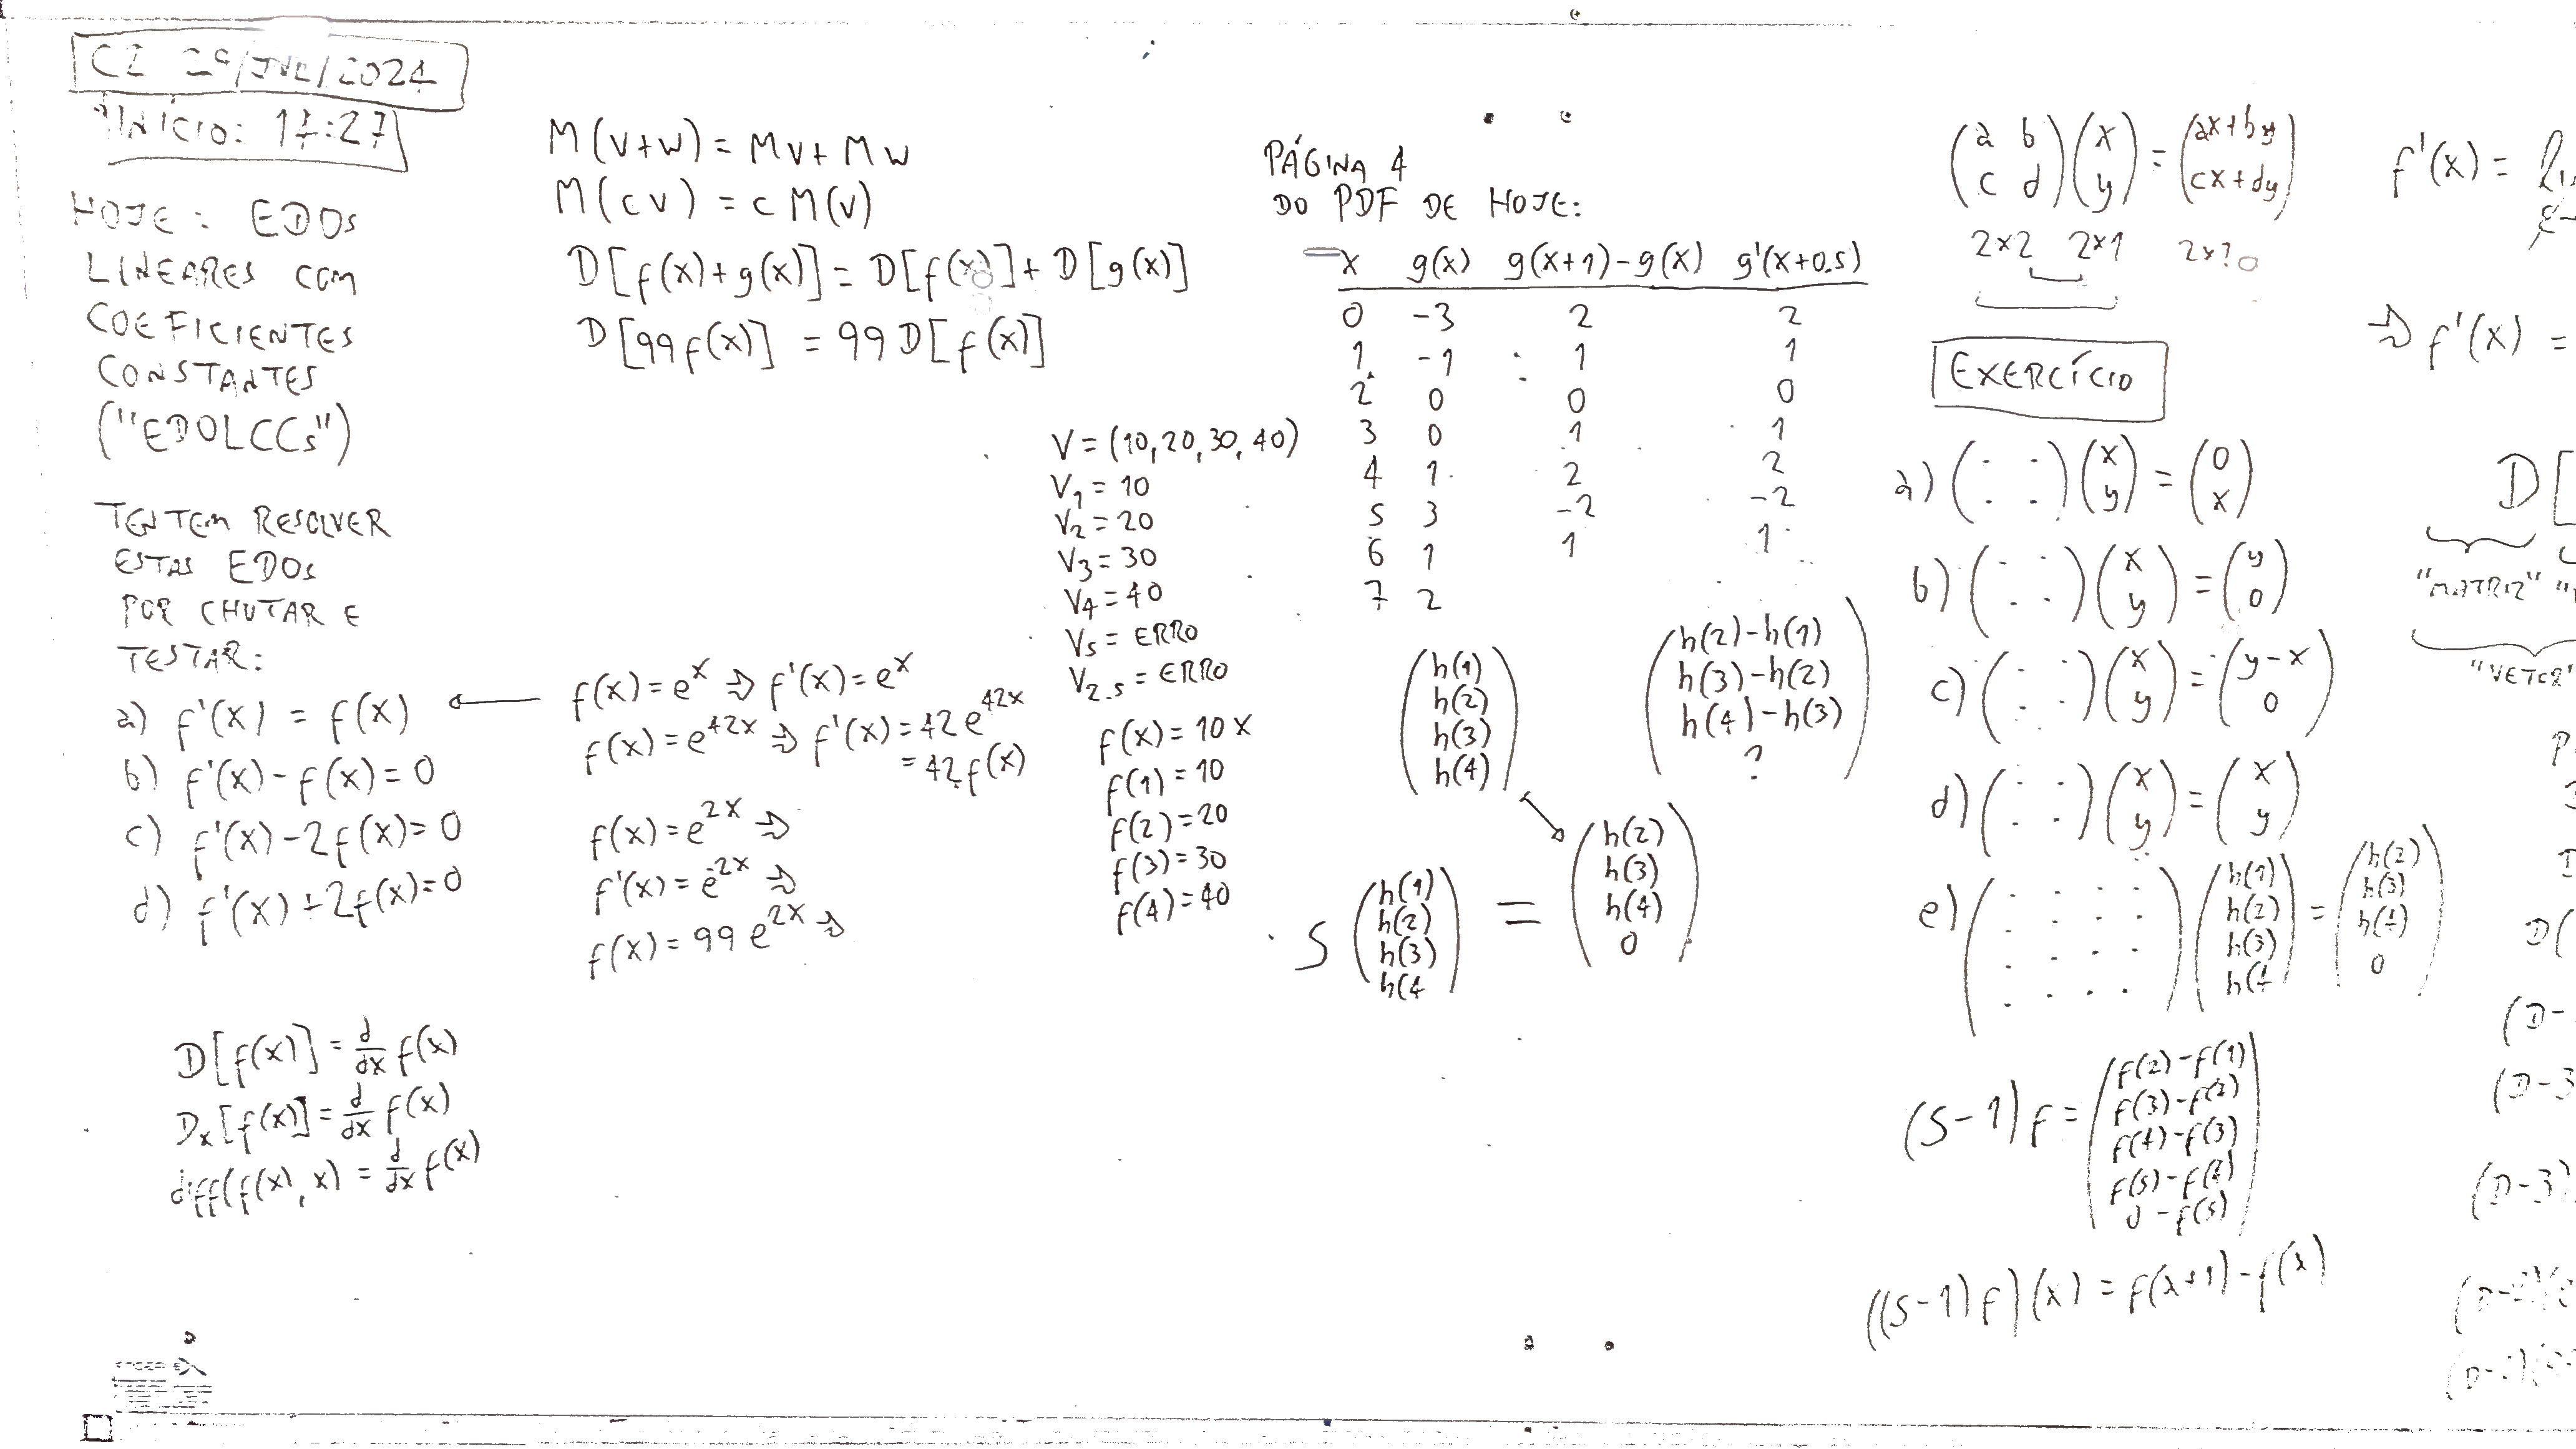 C2 29/JUL/2024
INÍCIO: 17:27
HOJE: EDOs
LINEARES COM
COEFICIENTES
CONSTANTES
("EDOLCCs")
TENTEM RESOLVER
ESTAS EDOs
POR CHUTAR E
TESTAR:
a) f'(x) = f(x)
b) f'(x) - f(x) = 0
c) f'(x) - 2f(x) = 0
d) f'(x) + 2f(x) = 0
D[f(x)] = d/dx f(x)
D_x[f(x)] = d/dx f(x)
diff(f(x), x) = d/dx f(x)
M(v+w) = Mv + Mw
M(cv) = c M(v)
D[f(x)+g(x)] = D[f(x)] + D[g(x)]
D[99f(x)] = 99 D[f(x)]
f(x) = e^x ⇒ f'(x) = e^x
f(x) = e^{42x} ⇒ f'(x) = 42e^{42x}
= 42f(x)
f(x) = e^{2x} ⇒
f'(x) = e^{-2x} ⇒
f(x) = 99 e^{2x} ⇒
V = (10, 20, 30, 40)
V_1 = 10
V_2 = 20
V_3 = 30
V_4 = 40
V_5 = ERRO
V_{2.5} = ERRO
f(x) = 10x
f(1) = 10
f(2) = 20
f(3) = 30
f(4) = 40
PÁGINA 4
DO PDF DE HOJE:
x g(x) g(x+1)-g(x) g'(x+0.5)
0 -3 2 2
1 -1 1 1
2 0 0 0
3 0 1 1
4 1 2 2
5 3 -2 -2
6 1 1 1
7 2
(h(1)
h(2)
h(3)
h(4))
(h(2)-h(1)
h(3)-h(2)
h(4)-h(3)
?)
S (h(1) = (h(2)
h(2) h(3)
h(3) h(4)
h(4 0)
(a b) (x) = (ax+by)
(c d) (y) (cx+dy)
2x2 2x1 2x?
EXERCÍCIO
a) (. .) (x) = (0)
(. .) (y) (x)
b) (. .) (x) = (y)
(. .) (y) (0)
c) (. .) (x) = (y-x)
(. .) (y) (0)
d) (. .) (x) = (x)
(. .) (y) (y)
e) (. . . .) (h(1) = (h(2)
. . . . h(2) h(3)
. . . . h(3) h(4)
. . . . h(4 0)
(S-1) f = (f(2)-f(1)
f(3)-f(2)
f(4)-f(3)
f(5)-f(4)
0-f(5))
((S-1) f)(x) = f(x+1)-f(x)
f'(x) =
⇒ f'(x) =
D[
"MATRIZ"
"VETOR"
D(
(D-
(D-3
(D-3)